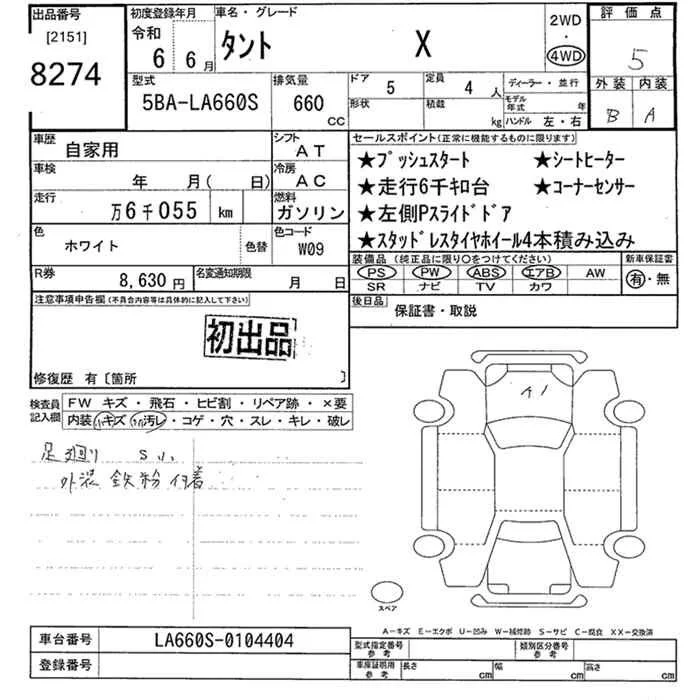 出品番号
[2151]
8274
初度登録年月
令和
6 6月
車名・グレード
タント X
2WD
・
4WD
評価点
5
外装 内装
B A
型式
5BA-LA660S
排気量
660 CC
ドア 5
定員 4 人
形状
積載 kg
ディーラー・並行
モデル年式 年
ハンドル 左・右
車歴
自家用
シフト
AT
車検
年 月( 日)
冷房
AC
走行
万6千055 km
燃料
ガソリン
色
ホワイト
色替
色コード
W09
R券
8,630円
名変通知期限
月 日
セールスポイント(正常に機能するものに限ります)
★プッシュスタート ★シートヒーター
★走行6千キロ台 ★コーナーセンサー
★左側Pスライドドア
★スタッドレスタイヤホイール4本積み込み
装備品 (純正品に限り○をつけてください)
PS PW ABS エアB AW
SR ナビ TV カワ
新車保証書
有・無
後日品
保証書・取説
注意事項申告欄(不具合内容等は具体的に記入して下さい)
初出品
修復歴 有〔箇所 〕
検査員記入欄
FW キズ・飛石・ヒビ割・リペア跡・×要
内装 キズ・汚レ・コゲ・穴・スレ・キレ・破レ
足廻り S小
外装 鉄粉付着
スペア
A-キズ E-エクボ U-凹み W-補修跡 S-サビ C-腐食 XX-交換済
車台番号
LA660S-0104404
登録番号
型式指定番号 参考
類別区分番号 参考
車庫証明用 参考
長さ cm
幅 cm
高さ cm